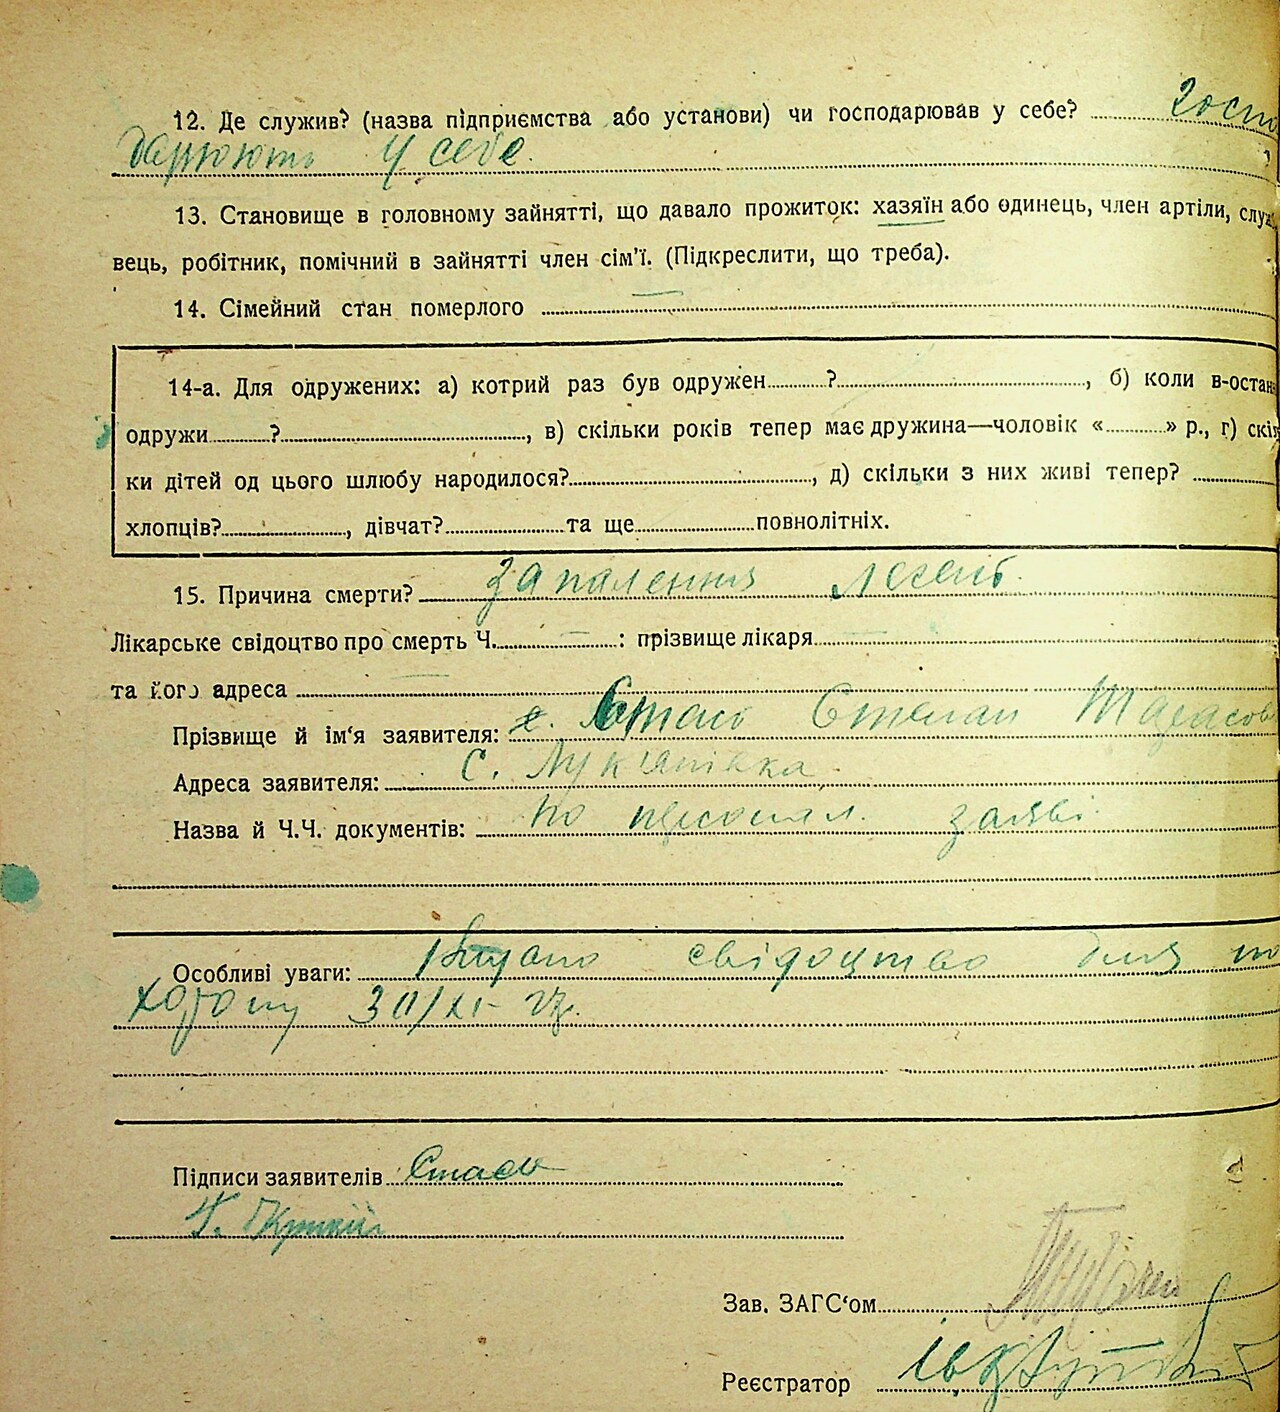 12. Де служив? (назва підприємства або установи) чи господарював у себе? госпо
дарюють у себе.
13. Становище в головному зайнятті, що давало прожиток: хазяїн або одинець, член артіли, служ
вець, робітник, помічний в зайнятті член сім'ї. (Підкреслити, що треба).
14. Сімейний стан померлого
14-а. Для одружених: а) котрий раз був одружен ? , б) коли в-остан
одружи ? , в) скільки років тепер має дружина—чоловік « » р., г) скіль
ки дітей од цього шлюбу народилося? , д) скільки з них живі тепер?
хлопців? , дівчат? та ще повнолітніх.
15. Причина смерти? Запалення легенів
Лікарське свідоцтво про смерть Ч. — : прізвище лікаря —
та його адреса —
Прізвище й ім'я заявителя: Стась Степан Тарасов
Адреса заявителя: С. Лук'янівка
Назва й Ч.Ч. документів: по персонал. заяві
Особливі уваги: Видано свідоцтво для по
хорону 30/XI-
Підписи заявителів Стась
Зав. ЗАГС'ом
Реєстратор